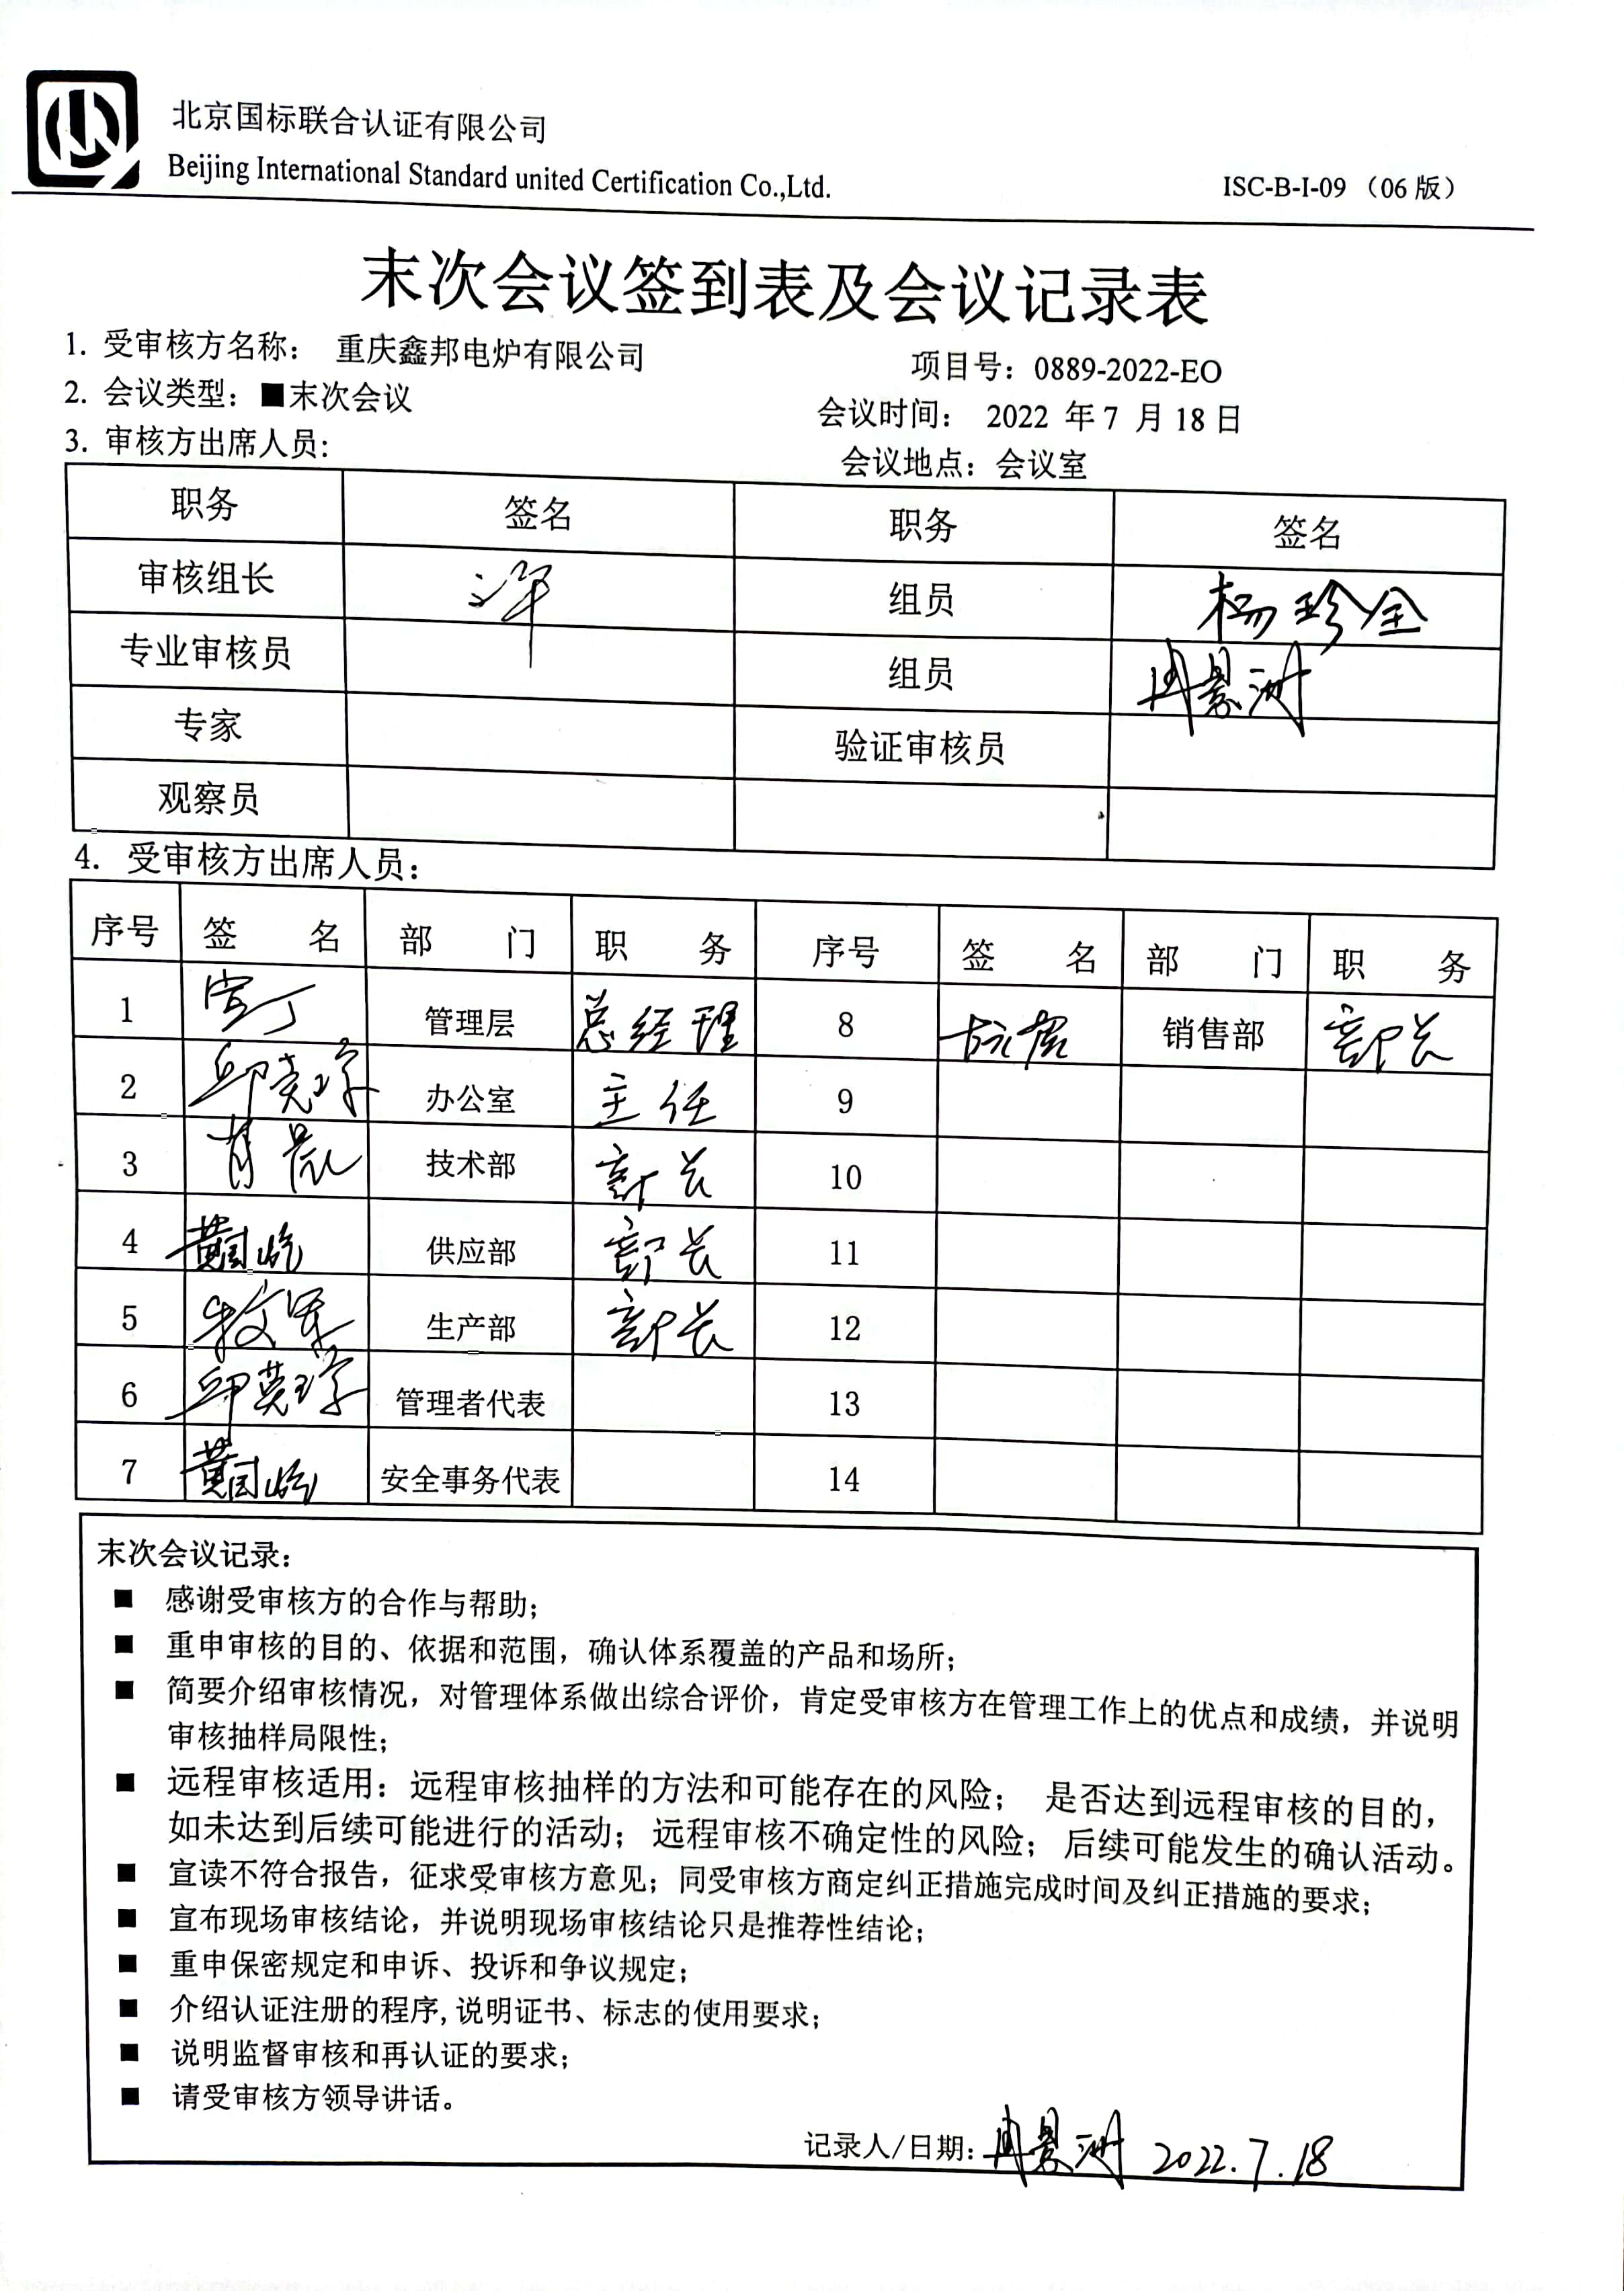 北京国标联合认证有限公司
Beijing International Standard united Certification Co.,Ltd.
ISC-B-I-09 （06 版）
末次会议签到表及会议记录表
1. 受审核方名称： 重庆鑫邦电炉有限公司 项目号：0889-2022-EO
2. 会议类型：■末次会议 会议时间： 2022 年 7 月 18 日
3. 审核方出席人员: 会议地点：会议室
职务 签名 职务 签名
审核组长 组员 杨珍全
专业审核员 组员 冉景洲
专家 验证审核员
观察员
4. 受审核方出席人员：
序号 签 名 部 门 职 务 序号 签 名 部 门 职 务
1 管理层 总经理 8 销售部 部长
2 办公室 主任 9
3 肖晨 技术部 部长 10
4 供应部 部长 11
5 生产部 部长 12
6 管理者代表 13
7 安全事务代表 14
末次会议记录：
■ 感谢受审核方的合作与帮助；
■ 重申审核的目的、依据和范围，确认体系覆盖的产品和场所；
■ 简要介绍审核情况，对管理体系做出综合评价，肯定受审核方在管理工作上的优点和成绩，并说明
审核抽样局限性；
■ 远程审核适用：远程审核抽样的方法和可能存在的风险； 是否达到远程审核的目的，
如未达到后续可能进行的活动； 远程审核不确定性的风险； 后续可能发生的确认活动。
■ 宣读不符合报告，征求受审核方意见；同受审核方商定纠正措施完成时间及纠正措施的要求；
■ 宣布现场审核结论，并说明现场审核结论只是推荐性结论；
■ 重申保密规定和申诉、投诉和争议规定；
■ 介绍认证注册的程序,说明证书、标志的使用要求；
■ 说明监督审核和再认证的要求；
■ 请受审核方领导讲话。
记录人/日期：冉景洲 2022.7.18